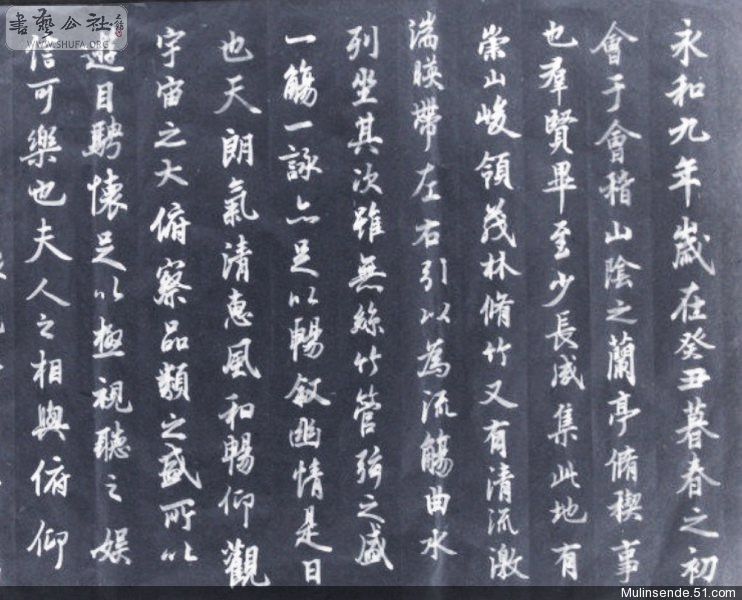 永和九年歲在癸丑暮春之初
會于會稽山陰之蘭亭脩稧事
也羣賢畢至少長咸集此地有
崇山峻領茂林脩竹又有清流激
湍暎帶左右引以為流觴曲水
列坐其次雖無絲竹管弦之盛
一觴一詠亦足以暢叙幽情是日
也天朗氣清惠風和暢仰觀
宇宙之大俯察品類之盛所以
遊目騁懷足以極視聽之娛
信可樂也夫人之相與俯仰
書藝公社
WWW.SHUFA.ORG
Mulinsende.51.com